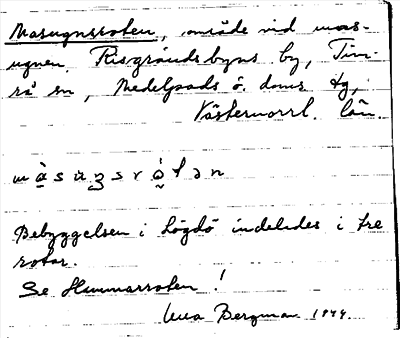 Masugnsroten, område vid mas-
ugnen. Risgrändsbyns by, Tim-
rå sn, Medelpads ö. doms tg,
Västernorrl. län.
Bebyggelsen i Lögdö indelades i tre
rotar.
Se Hammarroten!
Bergman 1944.